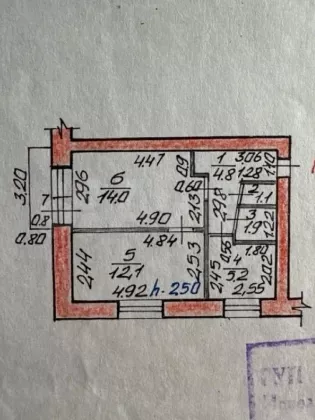 4.47
0.9
1
4.8
3.06
1.28
1.10
3.20
7
0.8
0.80
2.96
6
14.0
4.90
0.60
2.13
2.98
2
1.1
3
1.9
1.22
4.84
5
12,1
2.44
4.92
2.53
h-250
0.56
1.80
4
5,2
2.45
2.55
2.02
ГУП